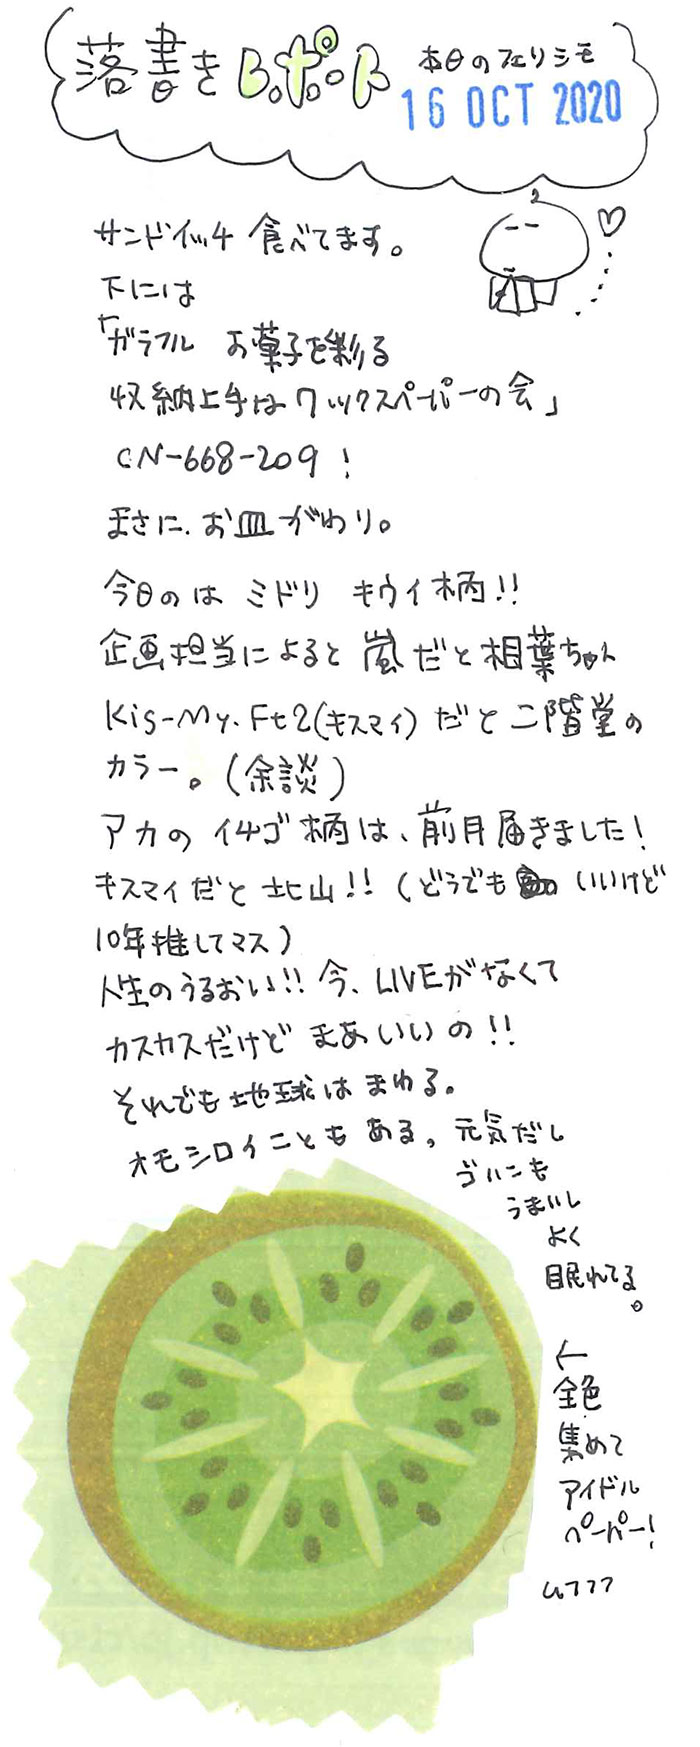 落書きレポート 本日のフェリシモ
16 OCT 2020
サンドイッチ 食べてます。
下には
「ガラフル お菓子を彩る
収納上手はワックスペーパーの会」
CN-668-209!
まさに、お皿がわり。
今日のは ミドリ キウイ柄!!
企画担当によると 嵐だと相葉ちゃん
Kis-My-Ft2(キスマイ)だと二階堂の
カラー。(余談)
アカの イチゴ柄は、前月届きました!
キスマイだと北山!!(どうでも いいけど
10年推してマス)
人生のうるおい!! 今、LIVEがなくて
カスカスだけど まあいいの!!
それでも地球は まわる。
オモシロイこともある。元気だし
ゴハンも
うまいし
よく
眠れてる。
←
全色
集めて
アイドル
ペーパー!